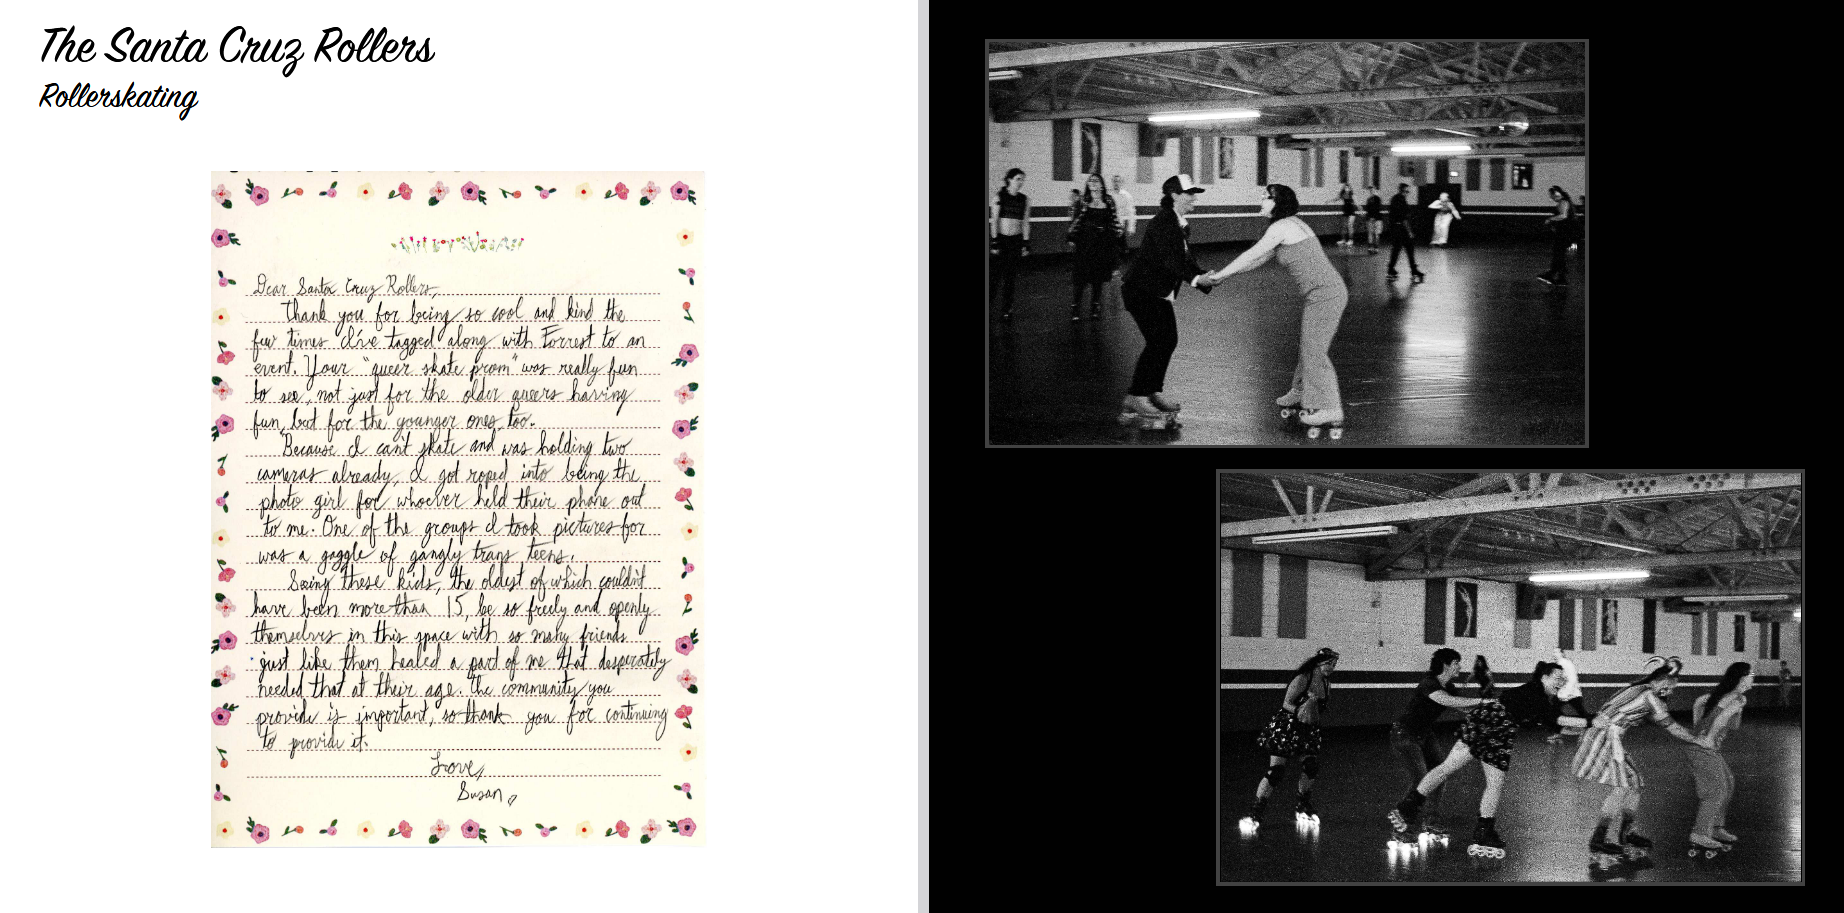 The Santa Cruz Rollers
Rollerskating
Dear Santa Cruz Rollers,
Thank you for being so cool and kind the
few times I've tagged along with Forrest to an
event. Your "queer skate prom" was really fun
to see, not just for the older queers having
fun, but for the younger ones too.
Because I can't skate and was holding two
cameras already, I got roped into being the
photo girl for whoever held their phone out
to me. One of the groups I took pictures for
was a gaggle of gangly trans teens.
Seeing these kids, the oldest of which couldn't
have been more than 15, be so freely and openly
themselves in this space with so many friends
just like them healed a part of me that desperately
needed that at their age. The community you
provide is important, so thank you for continuing
to provide it.
Love,
Susan